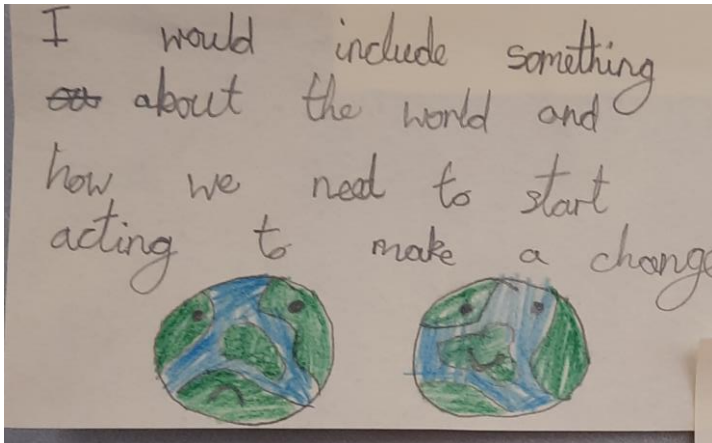 I would include something
about the world and
how we need to start
acting to make a change